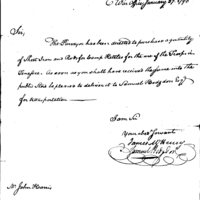 War Office January 27. 1798
Sir,
The Purveyor has been directed to purchase a quantity
of Sheet Iron and Rods for Camp Kettles for the use of the Troops in
Tenessee. As soon as you shall have received the same into the
public Store be pleased to deliver it to Samuel Hodgdon Esqr
for transportation
I am Sir
Your obed Servant
James McHenry
Samuel Hodgdon
Mr John Harris